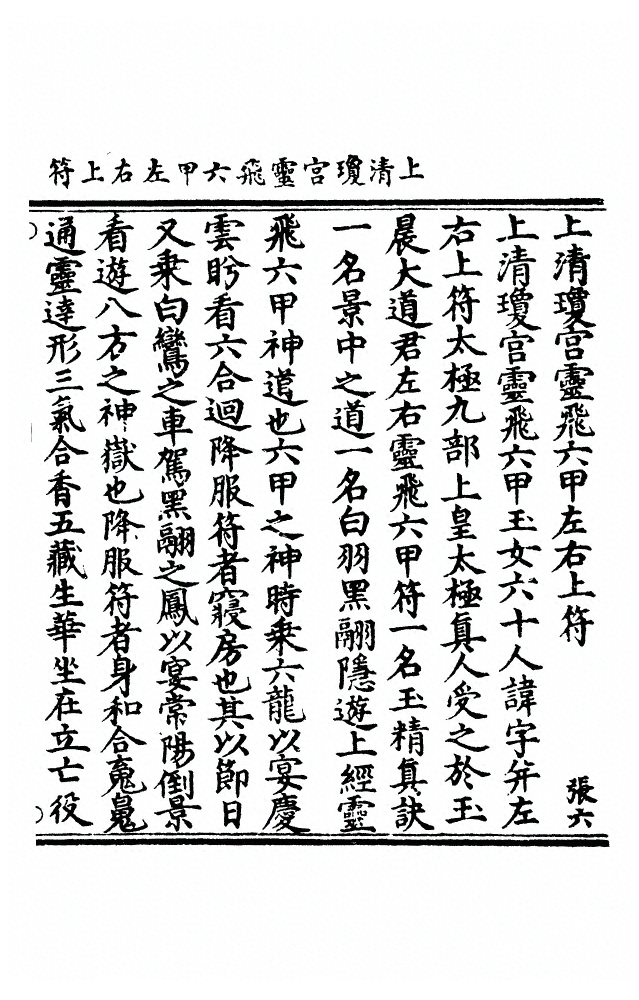 上清瓊宮靈飛六甲左右上符
上清瓊宮靈飛六甲左右上符
張六
上清瓊宮靈飛六甲玉女六十人諱字并左
右上符太極九部上皇太極真人受之於玉
晨大道君左右靈飛六甲符一名玉精真訣
一名景中之道一名白羽黑翮隱遊上經靈
飛六甲神道也六甲之神時乘六龍以宴慶
雲眄看六合迴降服符者寢房也其以節日
又乘白鸞之車駕黑翮之鳳以宴常陽倒景
看遊八方之神嶽也降服符者身和合䰟䰟
通靈達形三氣合香五藏生華坐在立亡役